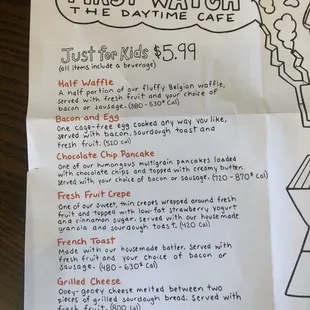 FIRST WATCH
THE DAYTIME CAFE
Just for Kids $5.99
(all items include a beverage)
Half Waffle
A half portion of our fluffy Belgian waffle,
served with fresh fruit and your choice of
bacon or sausage. (380-530* Cal)
Bacon and Egg
One cage-free egg cooked any way you like,
served with bacon, sourdough toast and
fresh fruit. (510 Cal)
Chocolate Chip Pancake
One of our humongous multigrain pancakes loaded
with chocolate chips and topped with creamy butter.
Served with your choice of bacon or sausage. (720-870* Cal)
Fresh Fruit Crepe
One of our sweet, thin crepes wrapped around fresh
fruit and topped with low-fat strawberry yogurt
and cinnamon sugar. Served with our housemade
granola and sourdough toast. (420 Cal)
French Toast
Made with our housemade batter. Served with
fresh fruit and your choice of bacon or
sausage. (480-630* Cal)
Grilled Cheese
Ooey-gooey cheese melted between two
pieces of grilled sourdough bread. Served with
fresh fruit. (800 Cal)